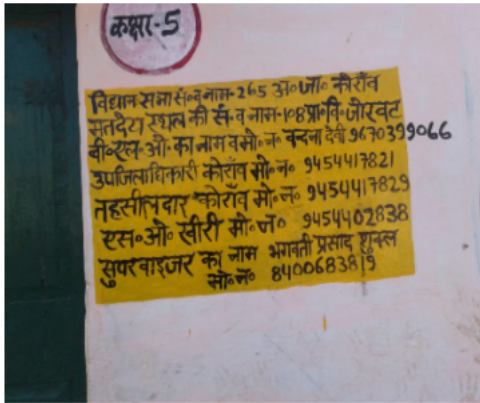 कक्षा-5
विधान सभा सं॰व नाम-265 अ॰जा॰ कोराँव
मतदेय स्थल की सं॰व नाम-108 प्रा॰वि॰ जोरवट
बी॰एल॰ओ॰ का नाम व मो॰न॰ वन्दना देवी 9670399066
उपजिलाधिकारी कोराँव मो॰न॰ 9454417821
तहसीलदार कोराँव मो॰न॰ 9454417829
एस॰ओ॰ खीरी मो॰न॰ 9454402838
सुपरवाइजर का नाम भगवती प्रसाद शुक्ल
मो॰न॰ 8400683819